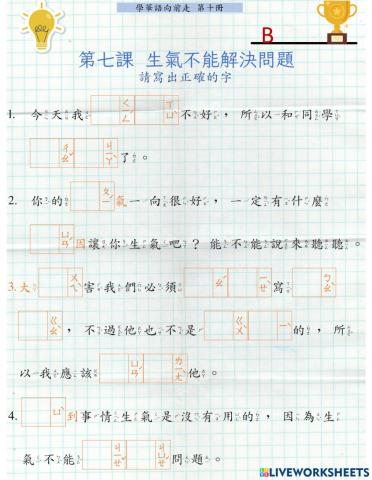 學華語向前走 第十冊
B
第七課 生氣不能解決問題
請寫出正確的字
1. 今天我 不好，所以和同學
ㄔㄠˇ ㄐㄧㄚˋ 了。
2. 你的 ㄆㄧˊ 氣一向很好，一定有什麼
ㄩㄢˊ 因讓你生氣吧？能不能說來聽聽。
3. 大 害我們必須 寫 ㄅㄠˋ
ㄍㄠˋ ，不過他也不是 ㄍㄨˋ ㄧˋ 的，所
以我應該 ㄩㄢˊ ㄌㄧㄤˋ 他。
4. ㄩˋ 到事情生氣是沒有用的，因為生
氣不能 ㄐㄧㄝˇ ㄐㄩㄝˊ 問題。
LIVEWORKSHEETS